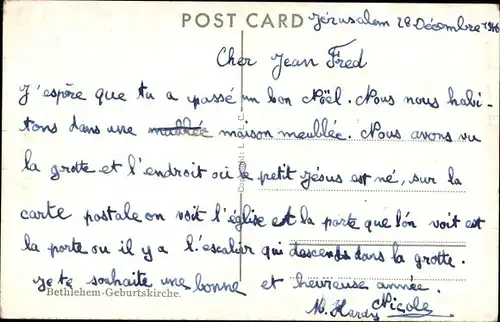 POST CARD
Jérusalem 28 Décembre
Cher Jean Fred
J'espère que tu a passé un bon Noël. Nous nous habi-
tons dans une meublée maison meublée. Nous avons vu
la grotte et l'endroit où le petit Jésus est né, sur la
carte postale on voit l'église et la porte que l'on voit est
la porte ou il y a l'escalier qui descends dans la grotte.
je te souhaite une bonne et heureuse année.
Bethlehem-Geburtskirche.
Nicole
M. Hardy